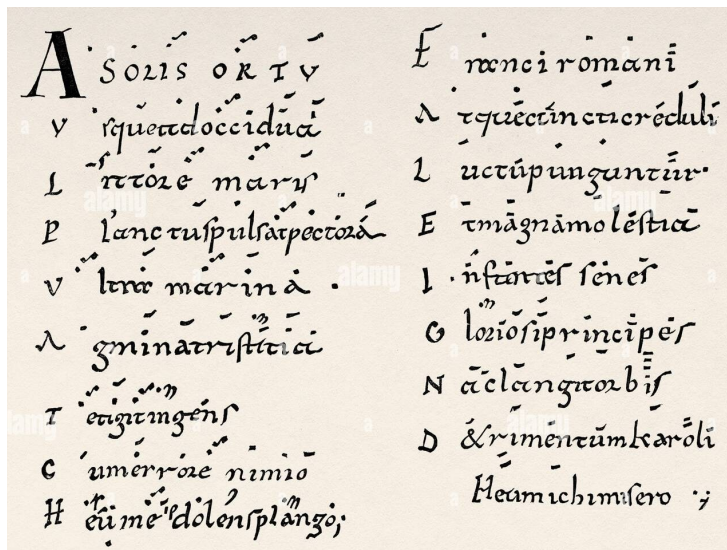 A SOLIS ORTV
V squeadoccidua
L ittore maris
P lanctuspulsatpectora
V ltra marina .
A gminatristitia
T etigitingens
C umerrore nimio
H eu me dolensplango;
F ranci romani
A tquecuncticreduli
L uctupunguntur.
E tmagnamolestia
I nfantes senes
G loriosiprincipes
N aclangitorbis
D &rimentumkaroli
Heumichimisero